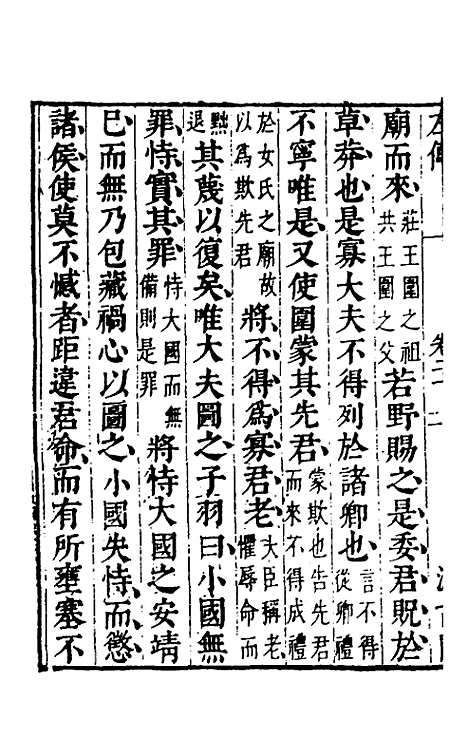 廟而來莊王圍之祖共王圍之父若野賜之是委君貺於
草莽也是寡大夫不得列於諸卿也言不得從卿禮
不寧唯是又使圍蒙其先君蒙欺也告先君而來不得成禮
於女氏之廟故以為欺先君將不得為寡君老大臣稱老懼辱命而
黜退其蔑以復矣唯大夫圖之子羽曰小國無
罪恃實其罪恃大國而無備則是罪將恃大國之安靖
已而無乃包藏禍心以圖之小國失恃而懲
諸侯使莫不憾者距違君命而有所壅塞不